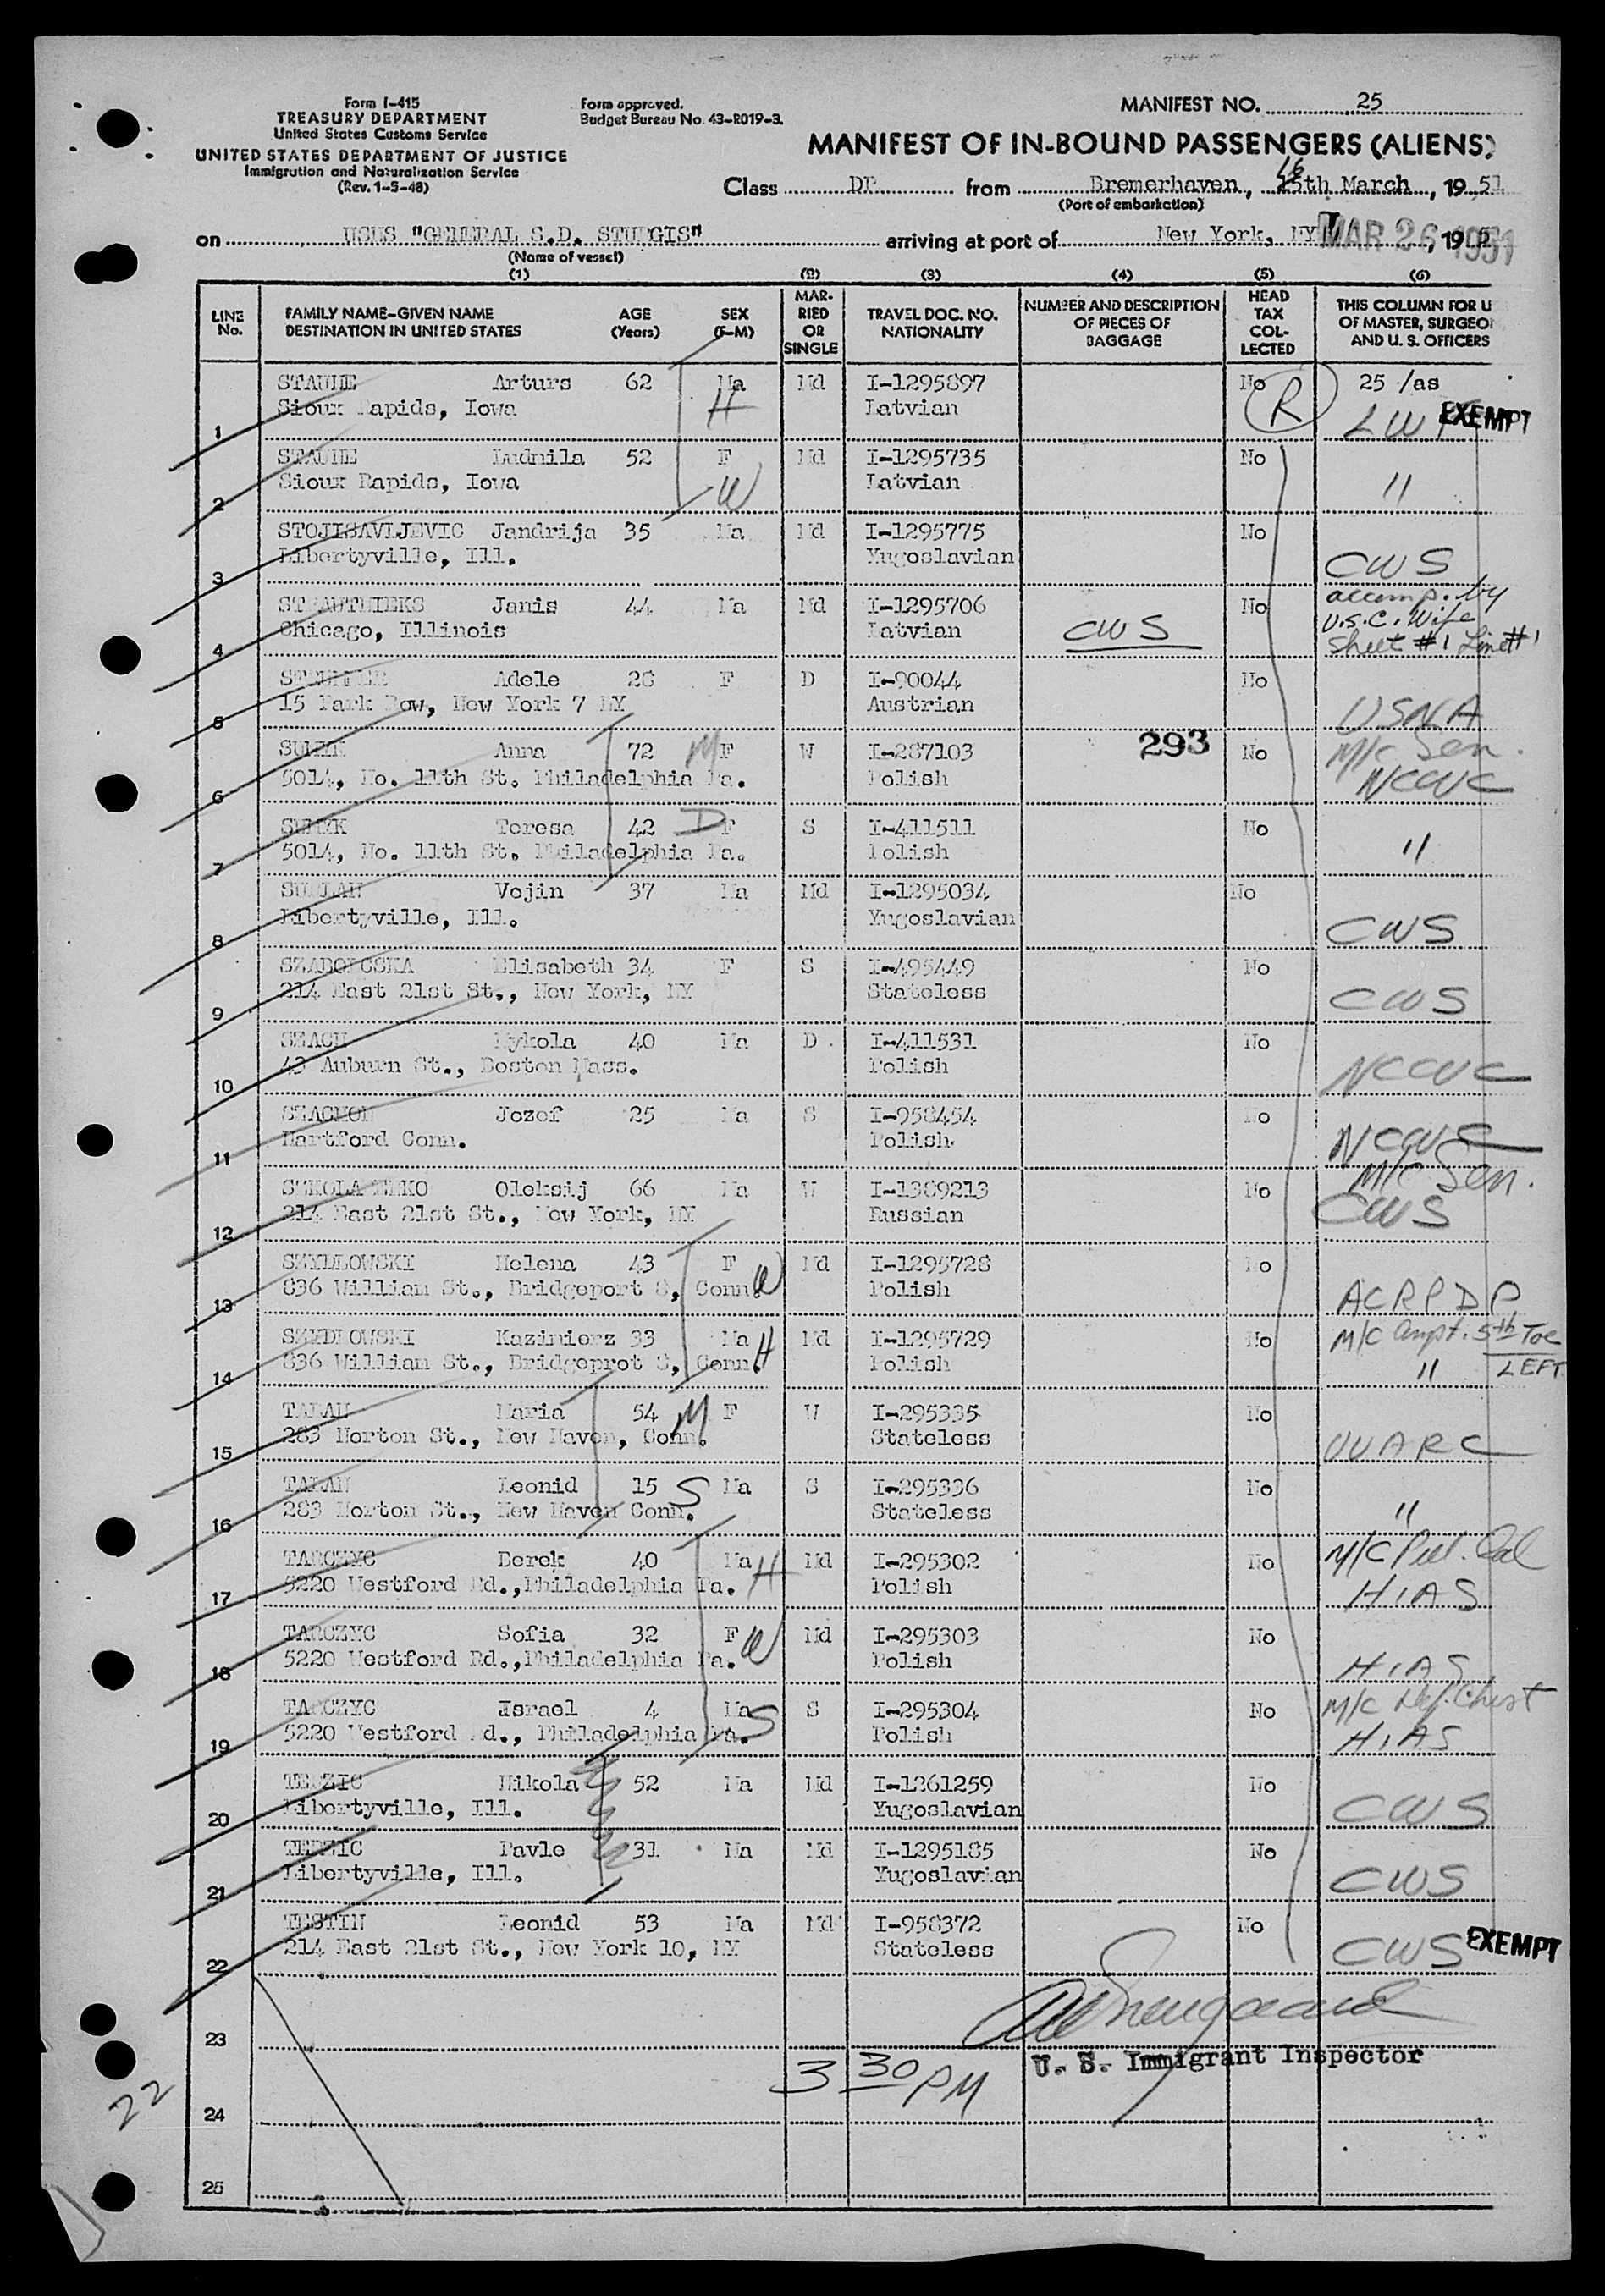 Form I-415
TREASURY DEPARTMENT
United States Customs Service
UNITED STATES DEPARTMENT OF JUSTICE
Immigration and Naturalization Service
(Rev. 1-5-48)
Form approved.
Budget Bureau No. 43-R019-3.
MANIFEST NO. 25
MANIFEST OF IN-BOUND PASSENGERS (ALIENS)
Class DP from Bremerhaven, 16th March, 1951
(Port of embarkation)
on USNS "GENERAL S.D. STURGIS" arriving at port of New York, NY MAR 26 1951, 195
(Name of vessel)
(1) (2) (3) (4) (5) (6)
LINE No. FAMILY NAME-GIVEN NAME DESTINATION IN UNITED STATES AGE (Years) SEX (F-M) MARRIED OR SINGLE TRAVEL DOC. NO. NATIONALITY NUMBER AND DESCRIPTION OF PIECES OF BAGGAGE HEAD TAX COLLECTED THIS COLUMN FOR U OF MASTER, SURGEO AND U. S. OFFICERS
Arturs 62 Ma Md I-1295897 No R 25 /as
1 Sioux Rapids, Iowa H Latvian LWF EXEMPT
Ludmila 52 F Md I-1295735 No
2 Sioux Rapids, Iowa W Latvian "
STOJISAVLJEVIC Jandrija 35 Ma Md I-1295775 No
3 Libertyville, Ill. Yugoslavian CWS
Janis 44 Ma Md I-1295706 No accomp. by
4 Chicago, Illinois Latvian CWS U.S.C. Wife
Sheet #1 Line #1
Adele 28 F D I-90044 No
5 15 Park Row, New York 7 NY Austrian USNA
Anna 72 M F W I-287103 293 No M/C Sen.
6 5014, No. 11th St. Philadelphia Pa. Polish NCWC
Teresa 42 D F S I-411511 No
7 5014, No. 11th St. Philadelphia Pa. Polish "
Vojin 37 Ma Md I-1295034 No
8 Libertyville, Ill. Yugoslavian CWS
Elisabeth 34 F S I-495449 No
9 214 East 21st St., New York, NY Stateless CWS
Mykola 40 Ma D. I-411531 No
10 43 Auburn St., Boston Mass. Polish NCWC
Jozef 25 Ma S I-958454 No
11 Hartford Conn. Polish NCWC
Oleksij 66 Ma W I-1389213 No M/C Sen.
12 214 East 21st St., New York, NY Russian CWS
SZYDLOWSKI Helena 43 F W Md I-1295728 No
13 836 William St., Bridgeport 8, Conn. Polish ACRPDP
SZYDLOWSKI Kazimierz 33 Ma H Md I-1295729 No M/C Ampt. 5th Toe
14 836 William St., Bridgeprot 8, Conn. Polish " LEFT
TARAN Maria 54 M F W I-295335 No
15 283 Norton St., New Haven, Conn. Stateless UUARC
TARAN Leonid 15 S Ma S I-295336 No
16 283 Norton St., New Haven Conn. Stateless "
TARCZYC Berek 40 Ma H Md I-295302 No M/C Pul. Cal
17 5220 Westford Rd., Philadelphia Pa. Polish HIAS
TARCZYC Sofia 32 F W Md I-295303 No
18 5220 Westford Rd., Philadelphia Pa. Polish HIAS
TARCZYC Israel 4 Ma S S I-295304 No M/C Def. Chest
19 5220 Westford Rd., Philadelphia Pa. Polish HIAS
TERZIC Nikola 52 Ma Md I-1261259 No
20 Libertyville, Ill. Yugoslavian CWS
TERZIC Pavle 31 Ma Md I-1295185 No
21 Libertyville, Ill. Yugoslavian CWS
TESTIN Leonid 53 Ma Md I-958372 No
22 214 East 21st St., New York 10, NY Stateless CWS EXEMPT
23
U. S. Immigrant Inspector
3 30 PM
22
24
25